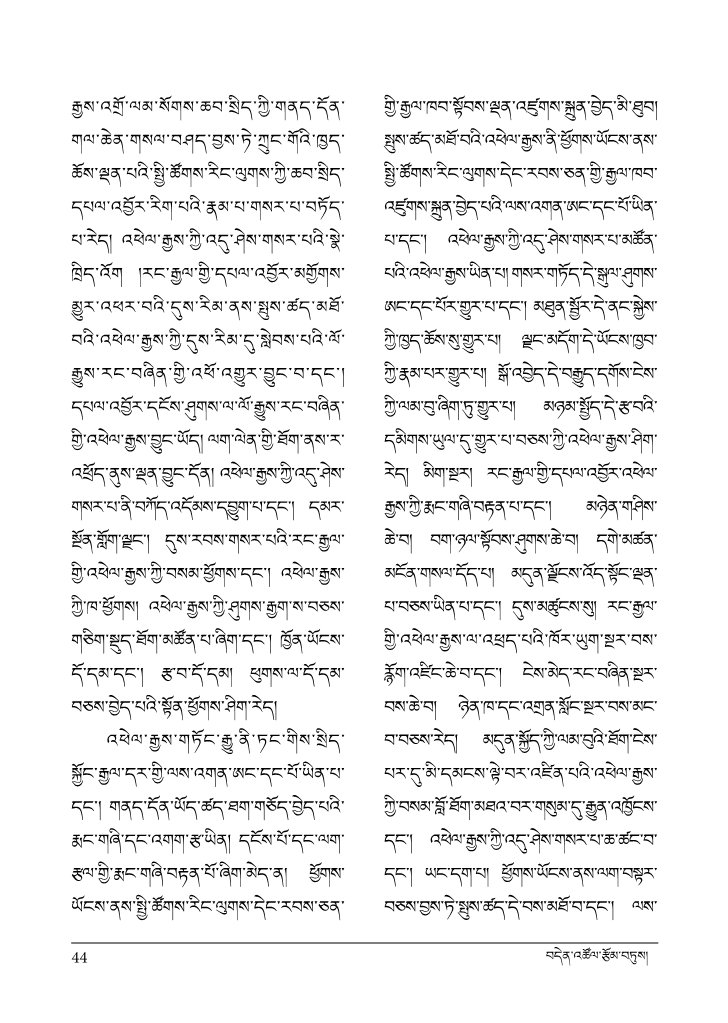 རྒྱས་འགྲོ་ལམ་སོགས་ཆབ་སྲིད་ཀྱི་གནད་དོན་
གལ་ཆེན་གསལ་བཤད་བྱས་ཏེ་ཀྲུང་གོའི་ཁྱད་
ཆོས་ལྡན་པའི་སྤྱི་ཚོགས་རིང་ལུགས་ཀྱི་ཆབ་སྲིད་
དཔལ་འབྱོར་རིག་པའི་རྣམ་པ་གསར་པ་བཏོད་
པ་རེད། འཕེལ་རྒྱས་ཀྱི་འདུ་ཤེས་གསར་པའི་སྣེ་
ཁྲིད་འོག །རང་རྒྱལ་གྱི་དཔལ་འབྱོར་མགྱོགས་
མྱུར་འཕར་བའི་དུས་རིམ་ནས་སྤུས་ཚད་མཐོ་
བའི་འཕེལ་རྒྱས་ཀྱི་དུས་རིམ་དུ་སླེབས་པའི་ལོ་
རྒྱུས་རང་བཞིན་གྱི་འཕོ་འགྱུར་བྱུང་བ་དང་།
དཔལ་འབྱོར་དངོས་ཤུགས་ལ་ལོ་རྒྱུས་རང་བཞིན་
གྱི་འཕེལ་རྒྱས་བྱུང་ཡོད། ལག་ལེན་གྱི་ཐོག་ནས་ར་
འཕྲོད་ནུས་ལྡན་བྱུང་དོན། འཕེལ་རྒྱས་ཀྱི་འདུ་ཤེས་
གསར་པ་ནི་བཀོད་འདོམས་དབྱུག་པ་དང་། དམར་
སྔོན་གློག་ལྗང་། དུས་རབས་གསར་པའི་རང་རྒྱལ་
གྱི་འཕེལ་རྒྱས་ཀྱི་བསམ་ཕྱོགས་དང་། འཕེལ་རྒྱས་
ཀྱི་ཁ་ཕྱོགས། འཕེལ་རྒྱས་ཀྱི་ཤུགས་རྒྱུག་ས་བཅས་
གཅིག་སྡུད་ཐོག་མཚོན་པ་ཞིག་དང་། ཁྱོན་ཡོངས་
དོ་དམ་དང་། རྩ་བ་དོ་དམ། ཕུགས་ལ་དོ་དམ་
བཅས་བྱེད་པའི་སྟོན་ཕྱོགས་ཤིག་རེད།
འཕེལ་རྒྱས་གཏོང་རྒྱུ་ནི་ཏང་གིས་སྲིད་
སྐྱོང་རྒྱལ་དར་གྱི་ལས་འགན་ཨང་དང་པོ་ཡིན་པ་
དང་། གནད་དོན་ཡོད་ཚད་ཐག་གཅོད་བྱེད་པའི་
རྨང་གཞི་དང་འགག་རྩ་ཡིན། དངོས་པོ་དང་ལག་
རྩལ་གྱི་རྨང་གཞི་བརྟན་པོ་ཞིག་མེད་ན། ཕྱོགས་
ཡོངས་ནས་སྤྱི་ཚོགས་རིང་ལུགས་དེང་རབས་ཅན་
གྱི་རྒྱལ་ཁབ་སྟོབས་ལྡན་འཛུགས་སྐྲུན་བྱེད་མི་ཐུབ།
སྤུས་ཚད་མཐོ་བའི་འཕེལ་རྒྱས་ནི་ཕྱོགས་ཡོངས་ནས་
སྤྱི་ཚོགས་རིང་ལུགས་དེང་རབས་ཅན་གྱི་རྒྱལ་ཁབ་
འཛུགས་སྐྲུན་བྱེད་པའི་ལས་འགན་ཨང་དང་པོ་ཡིན་
པ་དང་། འཕེལ་རྒྱས་ཀྱི་འདུ་ཤེས་གསར་པ་མཚོན་
པའི་འཕེལ་རྒྱས་ཡིན་པ། གསར་གཏོད་དེ་སྐུལ་ཤུགས་
ཨང་དང་པོར་གྱུར་པ་དང་། མཐུན་སྦྱོར་དེ་ནང་སྐྱེས་
ཀྱི་ཁྱད་ཆོས་སུ་གྱུར་པ། ལྗང་མདོག་དེ་ཡོངས་ཁྱབ་
ཀྱི་རྣམ་པར་གྱུར་པ། སྒོ་འབྱེད་དེ་བརྒྱུད་དགོས་ངེས་
ཀྱི་ལམ་བུ་ཞིག་ཏུ་གྱུར་པ། མཉམ་སྤྱོད་དེ་རྩ་བའི་
དམིགས་ཡུལ་དུ་གྱུར་པ་བཅས་ཀྱི་འཕེལ་རྒྱས་ཤིག་
རེད། མིག་སྔར། རང་རྒྱལ་གྱི་དཔལ་འབྱོར་འཕེལ་
རྒྱས་ཀྱི་རྨང་གཞི་བརྟན་པ་དང་། མཉེན་གཤིས་
ཆེ་བ། བག་ཉལ་སྟོབས་ཤུགས་ཆེ་བ། དགེ་མཚན་
མངོན་གསལ་དོད་པ། མདུན་ལྗོངས་འོད་སྟོང་ལྡན་
པ་བཅས་ཡིན་པ་དང་། དུས་མཚུངས་སུ། རང་རྒྱལ་
གྱི་འཕེལ་རྒྱས་ལ་འཕྲད་པའི་ཁོར་ཡུག་སྔར་བས་
རྙོག་འཛིང་ཆེ་བ་དང་། ངེས་མེད་རང་བཞིན་སྔར་
བས་ཆེ་བ། ཉེན་ཁ་དང་འགྲན་སློང་སྔར་བས་མང་
བ་བཅས་རེད། མདུན་སྐྱོད་ཀྱི་ལམ་བུའི་ཐོག་ངེས་
པར་དུ་མི་དམངས་ལྟེ་བར་འཛིན་པའི་འཕེལ་རྒྱས་
ཀྱི་བསམ་བློ་ཐོག་མཐའ་བར་གསུམ་དུ་རྒྱུན་འཁྱོངས་
དང་། འཕེལ་རྒྱས་ཀྱི་འདུ་ཤེས་གསར་པ་ཆ་ཚང་བ་
དང་། ཡང་དག་པ། ཕྱོགས་ཡོངས་ནས་ལག་བསྟར་
བཅས་བྱས་ཏེ་སྤུས་ཚད་དེ་བས་མཐོ་བ་དང་། ལས་
44
བདེན་འཚོལ་རྩོམ་བཏུས།